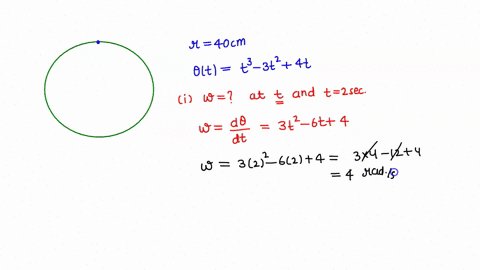 r = 40cm
θ(t) = t³-3t²+4t
(i) w=? at t and t=2sec.
w = dθ/dt = 3t²-6t+4
w = 3(2)²-6(2)+4 = 3×4-12+4
= 4 rad/s